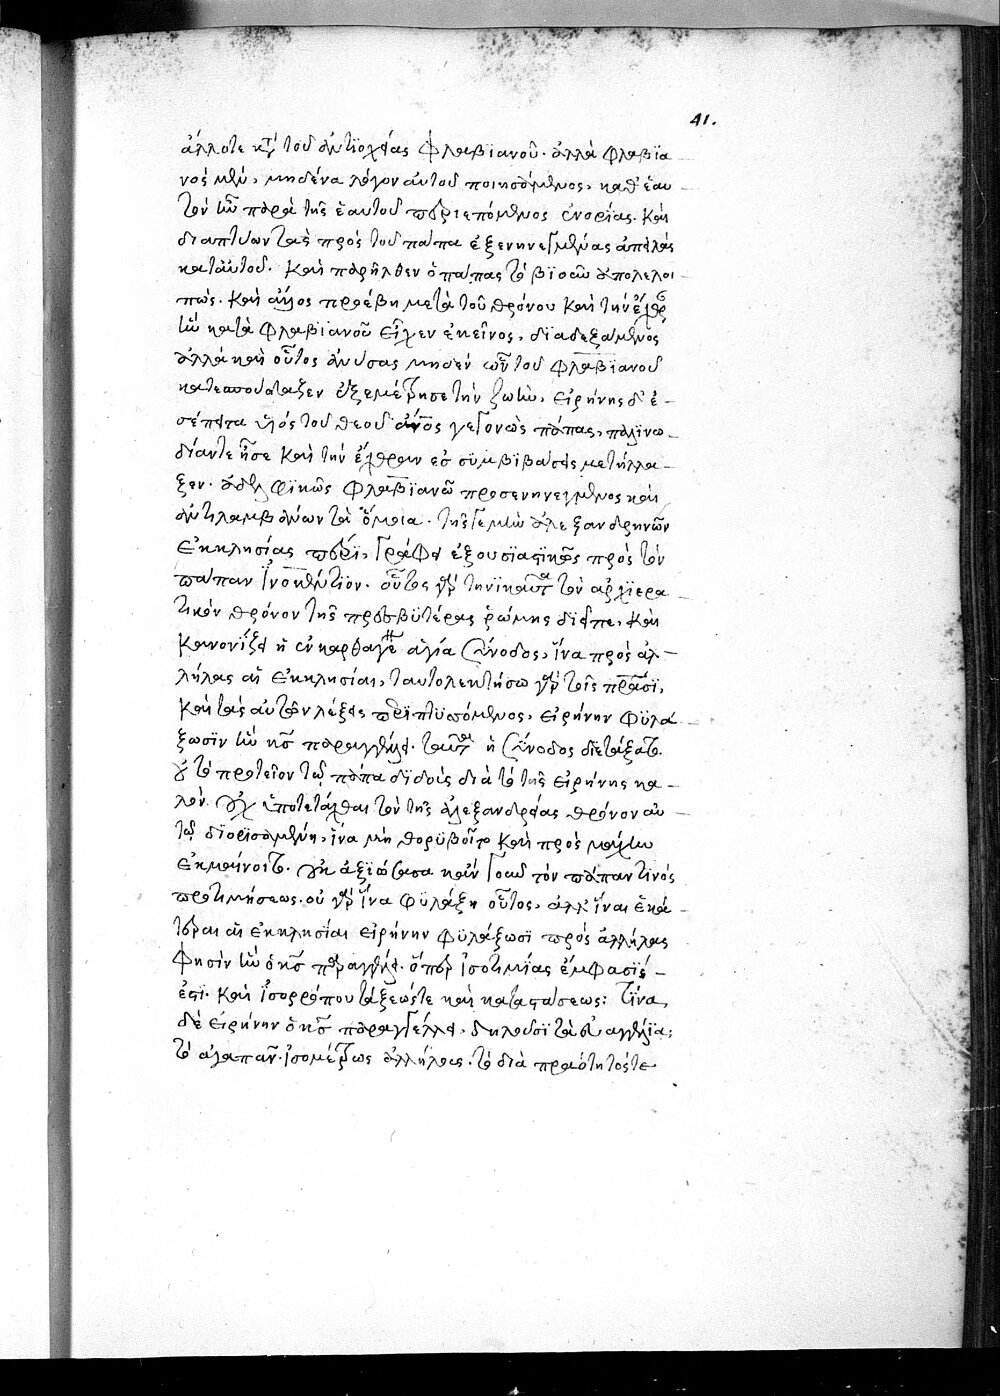 41.
ἄλλοτε κατὰ τοῦ ἀντιοχείας Φλαβϊανοῦ. ἀλλὰ Φλαβϊα
νὸς μὲν, μηδένα λόγον αὐτοῦ ποιησάμενος, καθ' ἑαυ
τὸν ἦν παρὰ τῆς ἑαυτοῦ περιεπόμενος ἐνορίας. Καὶ
διαπτύων τὰς πρὸς τοῦ πάπα ἐξενηνεγμένας ἀπειλὰς
κατ' αὐτοῦ. Καὶ παρῆλθεν ὁ πάπας τὸ βϊοῦν ἀπολελοι
πώς. Καὶ ἄλλος προέβη μετὰ τοῦ θρόνου Καὶ τὴν ἔχθραν
ἣν κατὰ Φλαβϊανοῦ εἶχεν ἐκεῖνος, διαδεξάμενος
ἀλλὰ καὶ οὗτος ἀνύσας μηδὲν ὧν τοῦ Φλαβϊανοῦ
κατεσπούδαξεν ἐξεμέτρησε τὴν ζωὴν. εἰρήνης δ' ἐ
σέπειτα υἱὸς τοῦ θεοῦ ἄνος γεγονὼς πάπας, παλινω
δίαν τε ᾖσε Καὶ τὴν ἔχθραν ἐς συμβιβάσεις μετήλλα
ξεν. ἀδελφικῶς Φλαβϊανῶ προσενηνεγμένος καὶ
ἀντιλαμβάνων τὰ ὅμοια. τῆς γε μὴν ἀλεξανδρηνῶν
ἐκκλησίας περὶ, γράφει ἐξουσϊαστικῶς πρὸς τὸν
πάπαν Ἰνοκέντϊον. οὗτος γὰρ τηνϊκαῦτα τὸν ἀρχϊερα
τικὸν θρόνον τῆς πρεσβυτέρας ῥώμης δϊεῖπε, Καὶ
Κανονίζει ἡ ἐν καρθαγένη ἁγία Σύνοδος, ἵνα πρὸς ἀλ
λήλας αἱ ἐκκλησίαι, ταυτολεκτήσω γὰρ τοῖς πράσϊ,
Καὶ τὰς αὐτῶν λέξεις περιπτϋσσόμενος, εἰρήνην φϋλά
ξωσϊν ἣν ὁ κς παραγγέλλει. ταῦτα ἡ Σύνοδος δϊετάξατο.
οὐ τὸ πρωτεῖον τῶ πάπα δϊδοῖς διὰ τὸ τῆς εἰρήνης κα
λὸν. οὐχ ὑποτετάχθαι τὸν τῆς ἀλεξανδρείας θρόνον αὐ
τῶ διορισαμένη, ἵνα μὴ θορϋβοῖτο Καὶ πρὸς μάχην
ἐκμαίνοιτο. οὐκ ἀξϊώσασα κἀν γοῦν τὸν πάπαν τινὸς
προτιμήσεως. οὐ γὰρ ἵνα φϋλάξη οὗτος, ἀλλ' ἵνα ἑκά
τεραι αἱ ἐκκλησίαι εἰρήνην φϋλάξωσϊ πρὸς ἀλλήλας
φησὶν ἣν ὁ κς παραγγέλλει. ὅπερ ἰσοτιμίας ἔμφασϊς
ἐστι. Καὶ ἰσορρόπου τάξεώς τε καὶ καταστάσεως: τίνα
δὲ εἰρήνην ὁ κς παραγγέλλει, δηλοῦσϊ τὰ εὐαγγέλϊα:
τὸ ἀγαπᾶν. ἰσομέτρως ἀλλήλους. τὸ διὰ πραότητός τε